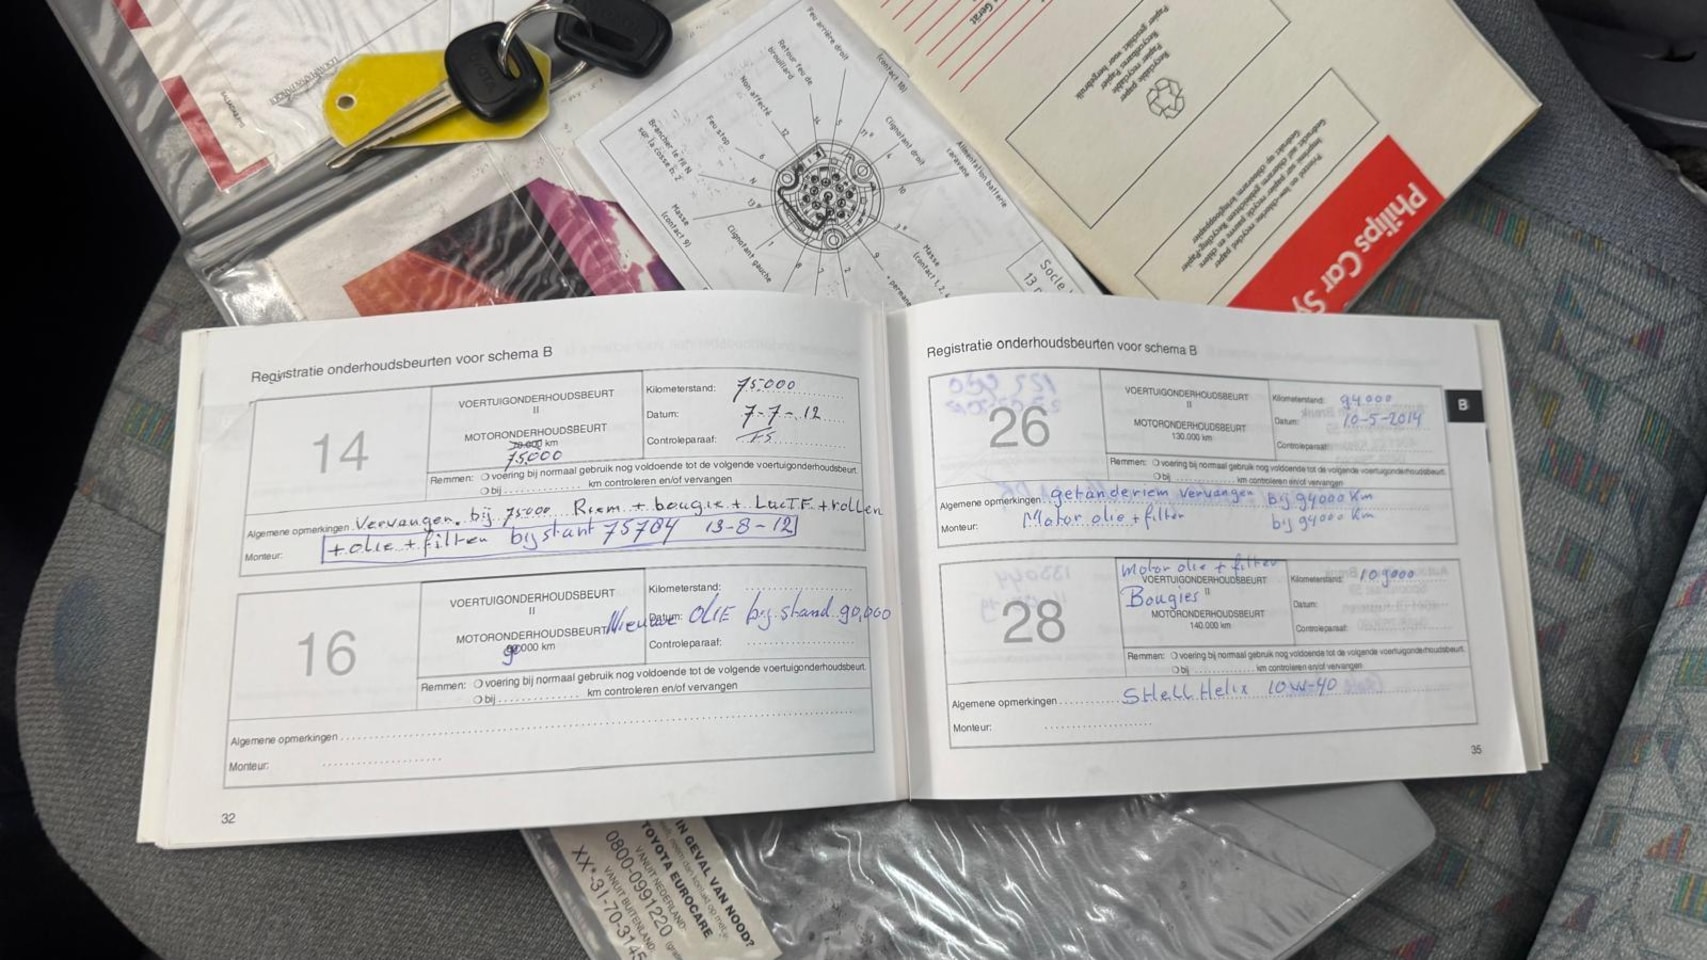 Feu arrière droit
(contact 10)
Retour feu de
brouillard
Non affecté
Feu stop
Brancher le fil N
Masse
(contact 9)
Clignotant gauche
Clignotant droit
Alimentation batterie
caravane
Masse
(contact 1, 2,
+ permane
Socle
13
Gerät
Recyclable paper
Papier recyclable
Philips Car Sy
Registratie onderhoudsbeurten voor schema B
14
VOERTUIGONDERHOUDSBEURT
II
MOTORONDERHOUDSBEURT
70.000 km
75000
Kilometerstand: 75.000
Datum: 7-7-12
Controleparaaf:
Remmen: voering bij normaal gebruik nog voldoende tot de volgende voertuigonderhoudsbeurt.
bij .............. km controleren en/of vervangen
Algemene opmerkingen Vervangen. bij 75000 Riem + bougie + LucTF + rollen
Monteur: + olie + filter bij stant 75784 13-8-12
16
VOERTUIGONDERHOUDSBEURT
II
MOTORONDERHOUDSBEURT
000 km
Kilometerstand:
Datum: Nieuwe OLIE bij stand 90,000
Controleparaaf:
Remmen: voering bij normaal gebruik nog voldoende tot de volgende voertuigonderhoudsbeurt.
bij .............. km controleren en/of vervangen
Algemene opmerkingen
Monteur:
32
Registratie onderhoudsbeurten voor schema B
B
26
VOERTUIGONDERHOUDSBEURT
II
MOTORONDERHOUDSBEURT
130.000 km
Kilometerstand: 94000
Datum: 10-5-2014
Controleparaaf:
Remmen: voering bij normaal gebruik nog voldoende tot de volgende voertuigonderhoudsbeurt.
bij .............. km controleren en/of vervangen
Algemene opmerkingen getanderiem vervangen bij 94000 Km
Monteur: Motor olie + filter bij 94000 Km
28
Motor olie + filter
VOERTUIGONDERHOUDSBEURT
Bougies II
MOTORONDERHOUDSBEURT
140.000 km
Kilometerstand: 109000
Datum:
Controleparaaf:
Remmen: voering bij normaal gebruik nog voldoende tot de volgende voertuigonderhoudsbeurt.
bij .............. km controleren en/of vervangen
Algemene opmerkingen SHell Helix 10W-40
Monteur:
35
IN GEVAL VAN NOOD?
TOYOTA EUROCARE
VANUIT NEDERLAND:
0800-0991220
VANUIT BUITENLAND:
XX*-31-70-3145